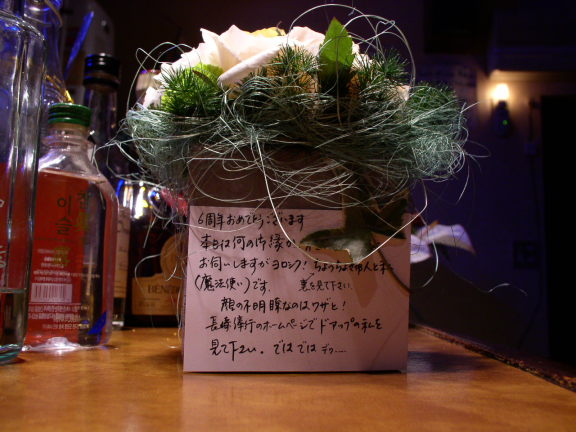 6周年おめでとうございます
本日は何の御縁か…
お伺いしますがヨロシク！ちょうちょ夫人と
(魔法使い)です。 裏を見て下さい
顔の不明瞭なのはワザと！
長崎港行のホームページでドアップの私を
見て下さい。ではでは
이
슬
BÉNÉ